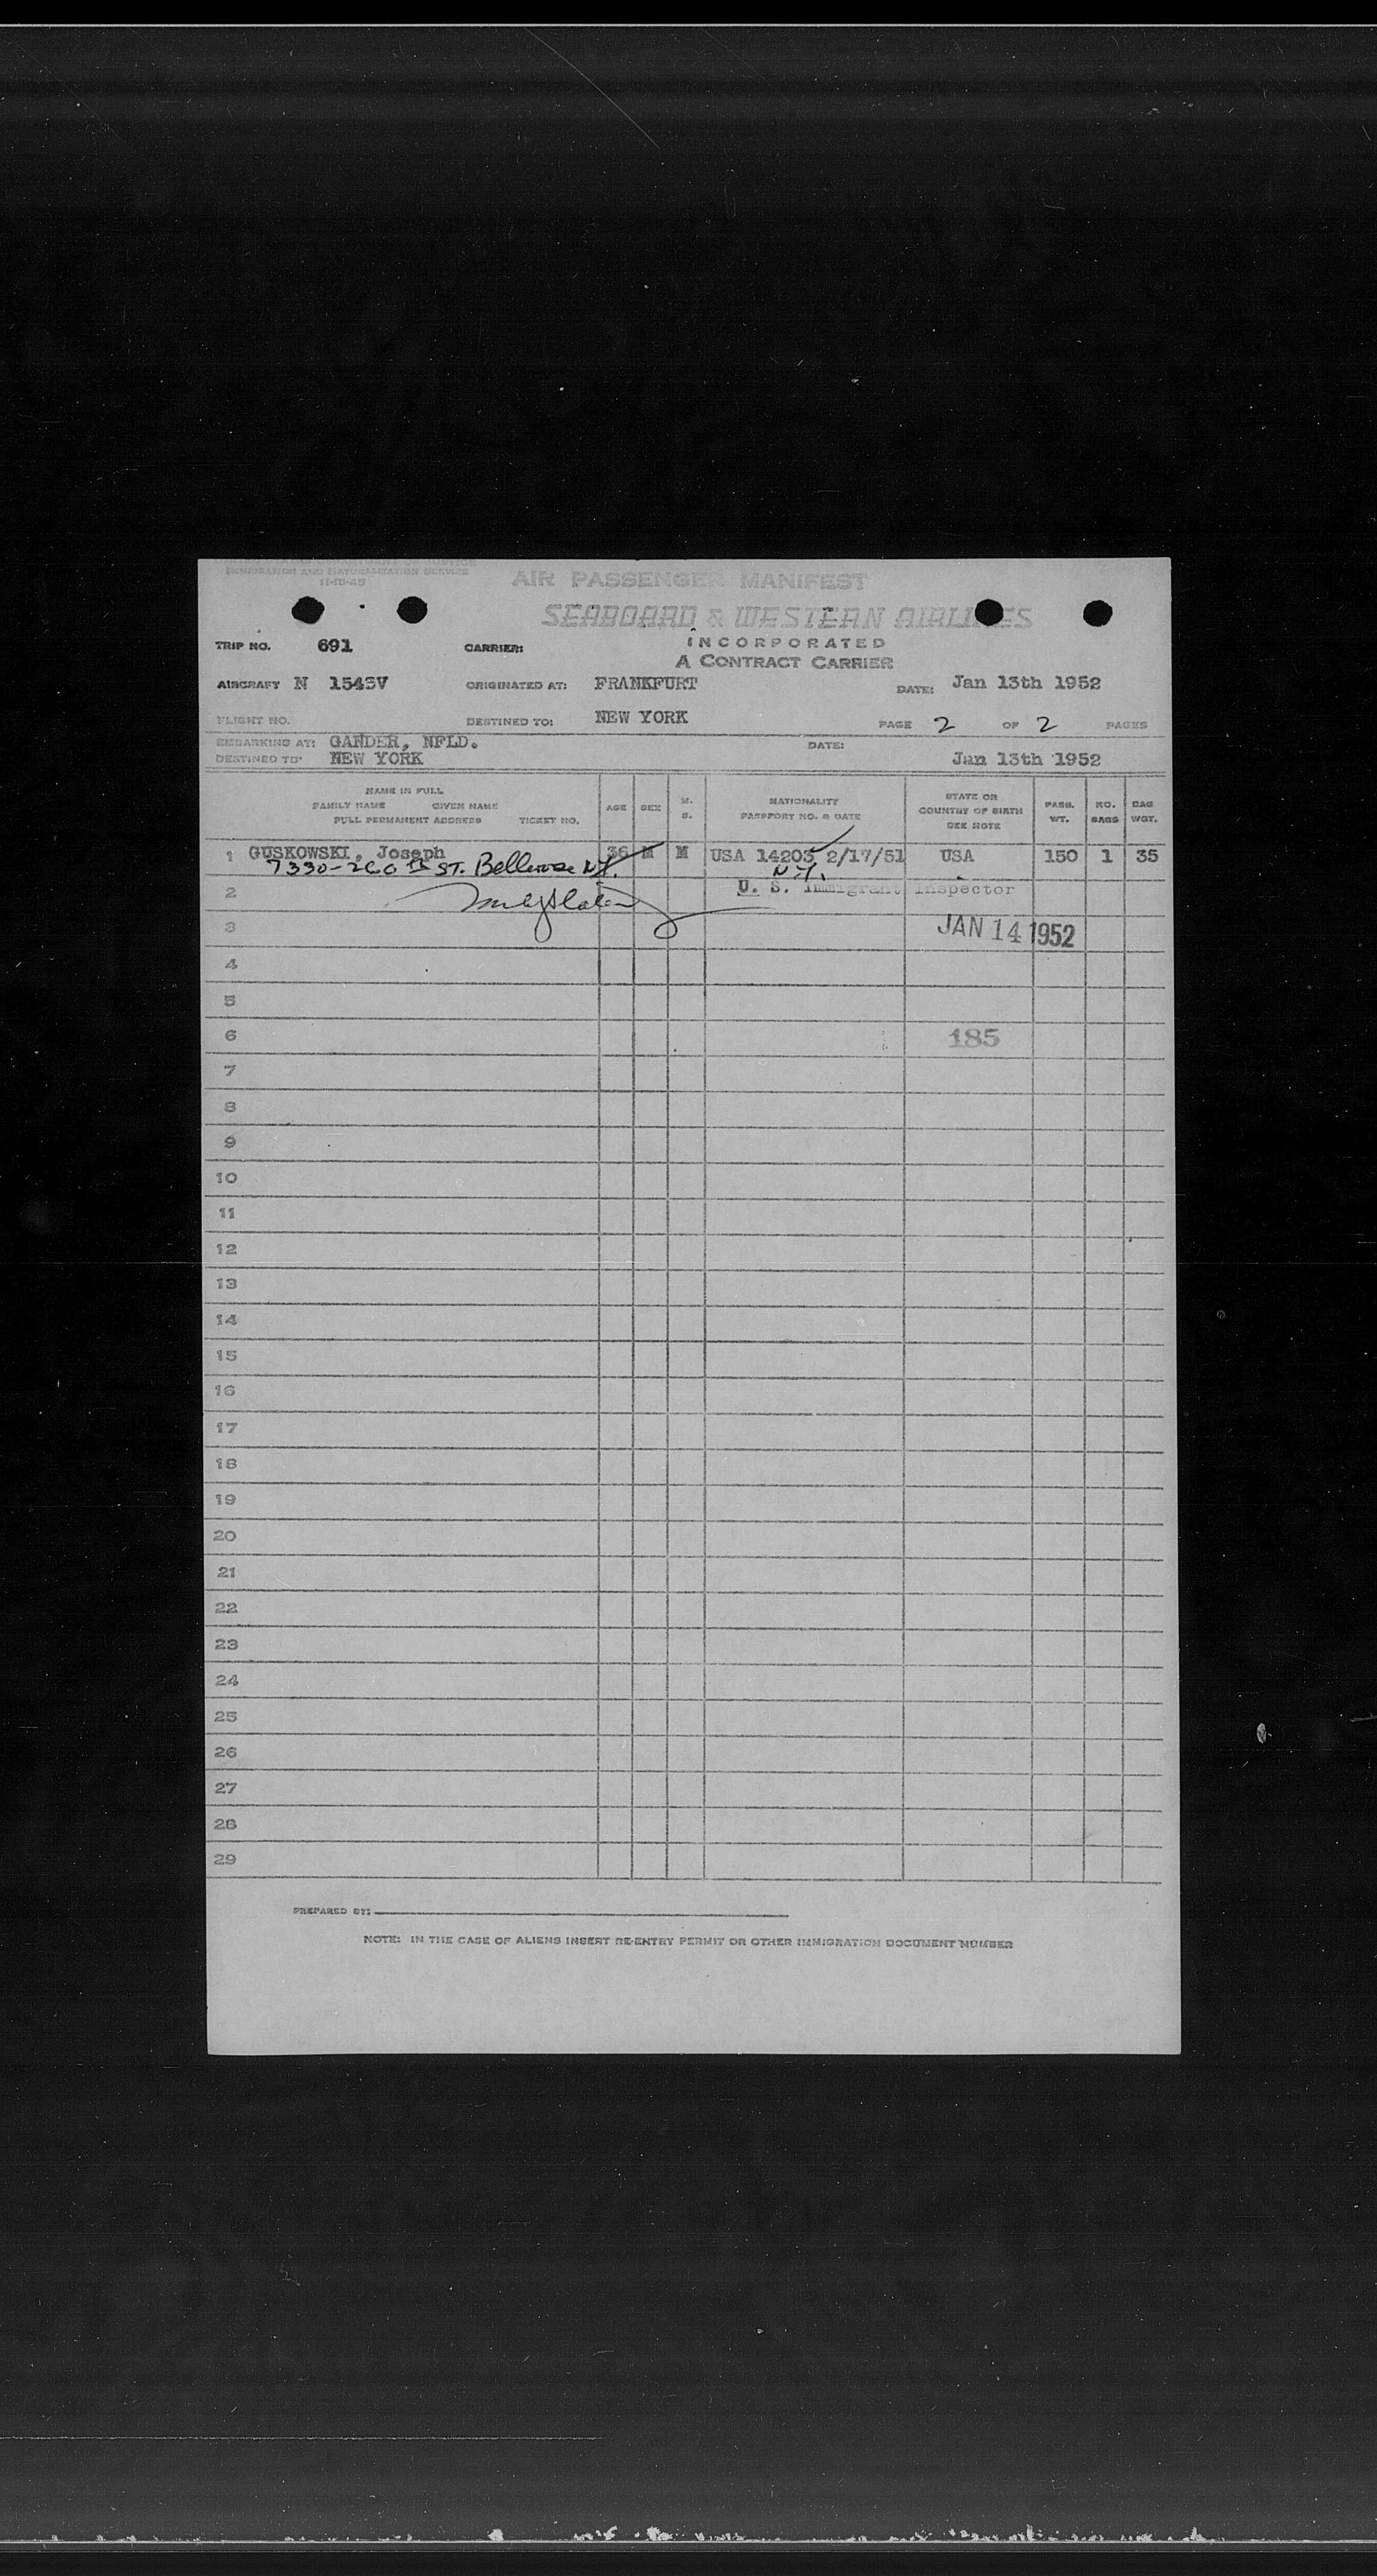 IMMIGRATION AND NATURALIZATION SERVICE
11-10-49
AIR PASSENGER MANIFEST
SEABOARD & WESTERN AIRLINES
INCORPORATED
A CONTRACT CARRIER
TRIP NO. 691 CARRIER:
AIRCRAFT N 1543V ORIGINATED AT: FRANKFURT DATE: Jan 13th 1952
FLIGHT NO. DESTINED TO: NEW YORK PAGE 2 OF 2 PAGES
EMBARKING AT: GANDER, NFLD. DATE:
DESTINED TO: NEW YORK Jan 13th 1952
NAME IN FULL
FAMILY NAME GIVEN NAME
FULL PERMANENT ADDRESS TICKET NO.
AGE SEX M. S.
NATIONALITY
PASSPORT NO. & DATE
STATE OR
COUNTRY OF BIRTH
SEE NOTE
PASS. WT.
NO. BAGS
BAG WGT.
1 GUSKOWSKI, Joseph 36 M M USA 14203 2/17/51 USA 150 1 35
7330-260th ST. Bellerose N.Y. N.Y.
2 U. S. Immigrant Inspector
3 JAN 14 1952
4
5
6 185
7
8
9
10
11
12
13
14
15
16
17
18
19
20
21
22
23
24
25
26
27
28
29
PREPARED BY:
NOTE: IN THE CASE OF ALIENS INSERT RE-ENTRY PERMIT OR OTHER IMMIGRATION DOCUMENT NUMBER